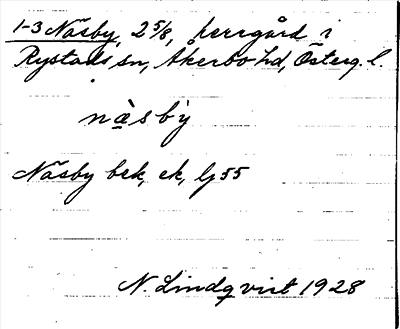 1-3 Näsby, 2 5/8, herrgård i
Rystads sn, Åkerbo hd, Österg. l.
nàsby
Näsby bek, ek, lj 55
N. Lindqvist 1928